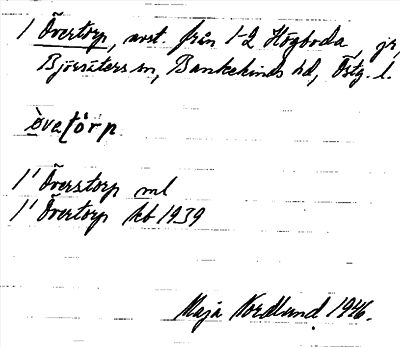 1 Övertorp, avst. från 1-2 Högboda jr,
Björsäters sn, Bankekinds hd, Östg. l.
òvatórp
1' Överstorp ml
1' Övertorp kb 1939
Maja Nordlund 1946.